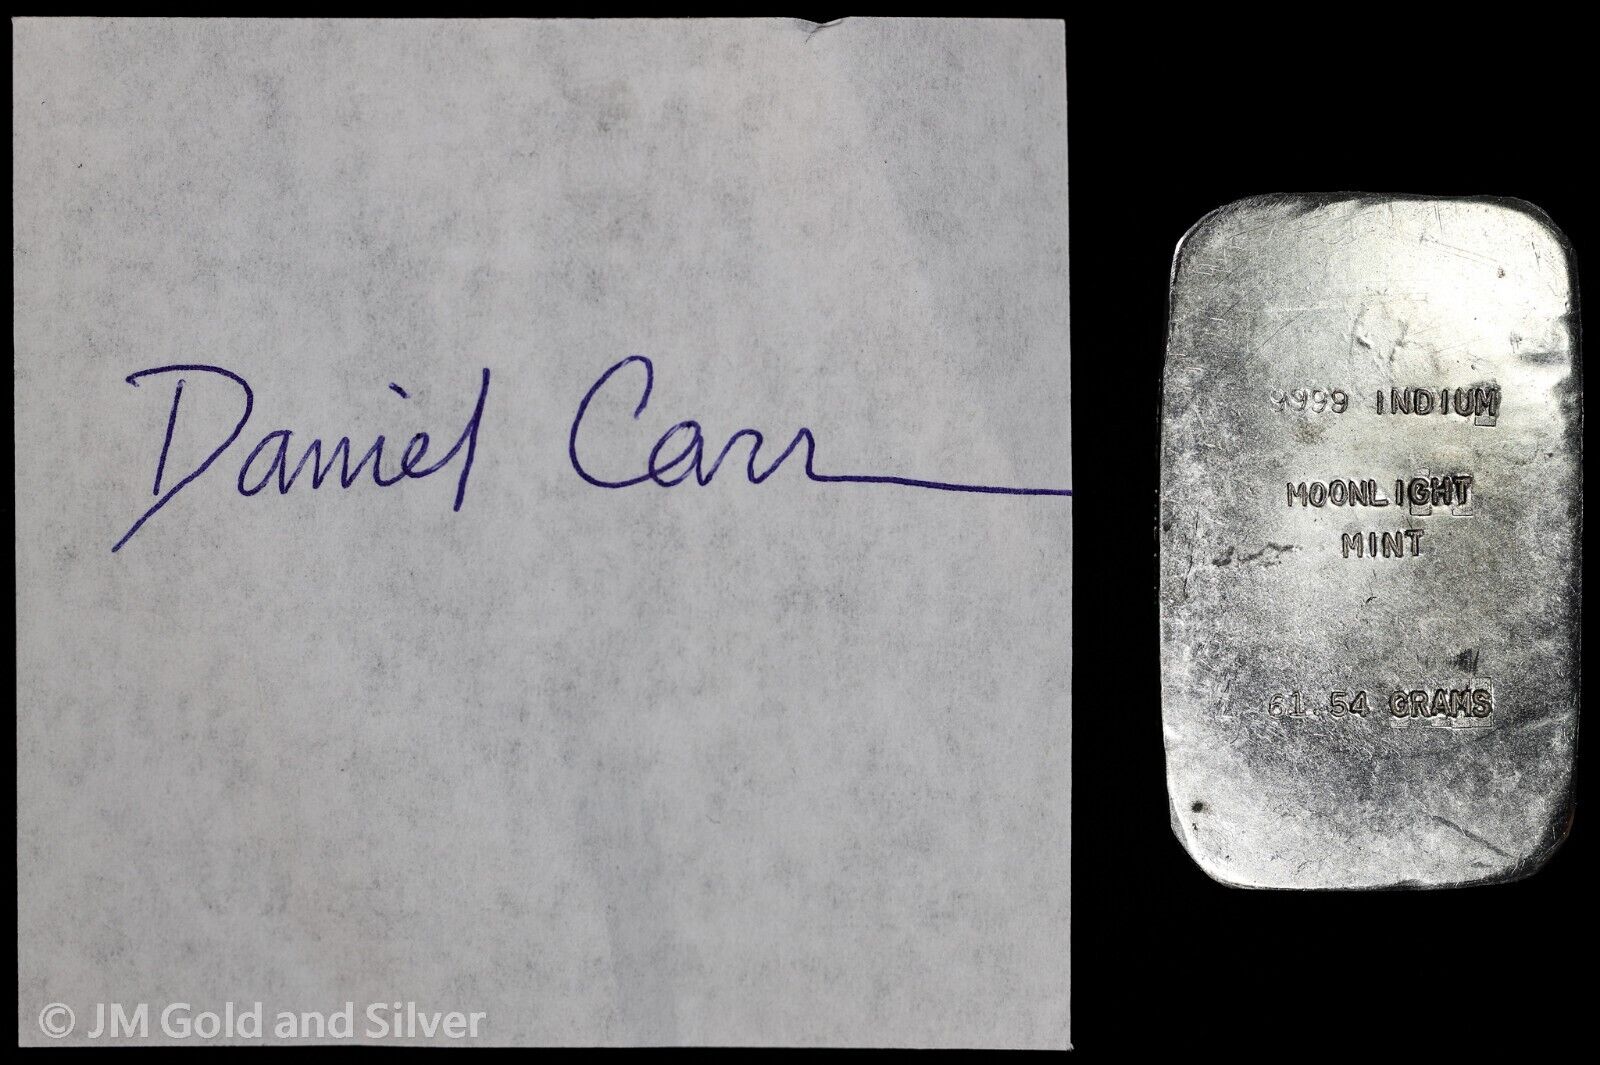 Daniel Carr
9999 INDIUM
MOONLIGHT
MINT
61.54 GRAMS
© JM Gold and Silver